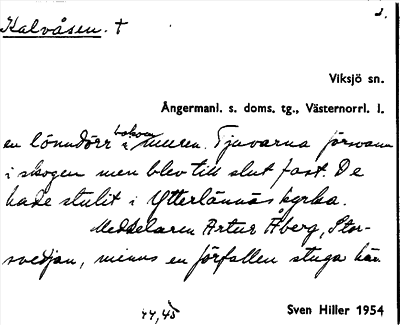 Kalvåsen. † 2.
Viksjö sn.
Ångermanl. s. doms. tg., Västernorrl. l.
en lönndörr bakom i muren. Tjuvarna försvann
i skogen men blev till slut fast. De
hade stulit i Ytterlännäs kyrka.
Meddelaren Artur Åberg, Stor-
svedjan, minns en förfallen stuga här.
44,45
Sven Hiller 1954